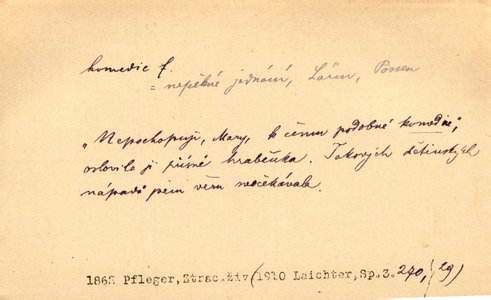 komedie f.
= nepěkné jednání, Lärm, Possen
„Nepochopuji, Mary, k čemu podobné komedie,"
oslovila ji přísně hraběnka. Takových dětinských
nápadů jsem věru neočekávala.
1862 Pfleger, Ztrac.živ (1910 Laichter, Sp.3. 270, /29)